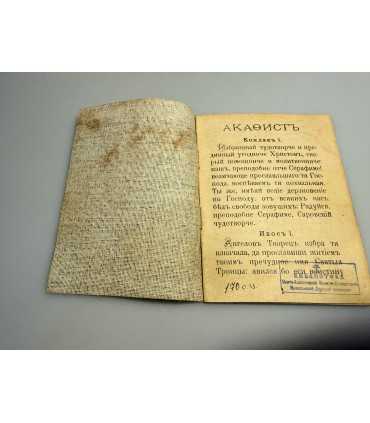 АКАѲИСТЪ
Кондакъ 1.
Избранный чудотворче и пре-
дивный угодниче Христовъ, ско-
рый помощниче и молитвенниче
нашъ, преподобне отче Серафиме!
величающе прославльшаго тя Гос-
пода, воспѣваемъ ти похвальная.
Ты же, имѣяй велие дерзновение
ко Господу, отъ всякихъ насъ
бѣдъ свободи зовущихъ: Радуйся,
преподобне Серафиме, Саровский
чудотворче.
Икосъ 1.
Ангеловъ Творецъ избра тя
изначала, да прославиши житиемъ
твоимъ пречудное имя Святыя
Троицы: явился бо еси воистину
БИБЛИОТЕКА